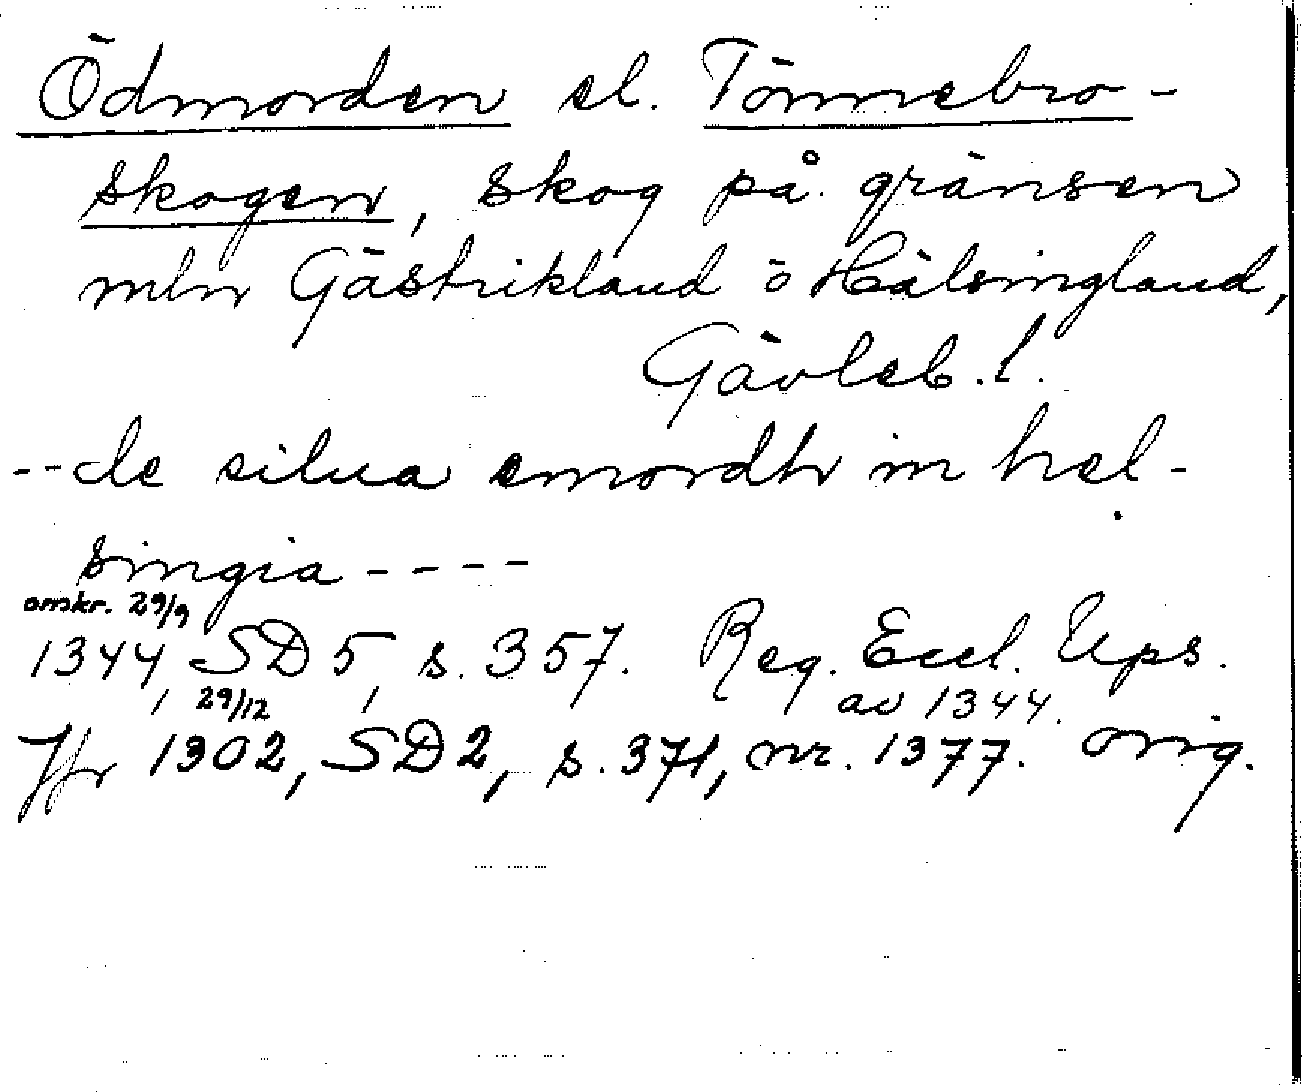 Ödmorden el. Tönnebro-
skogen, skog på gränsen
mln Gästrikland o Hälsingland,
Gävleb. l.
-- de silua emordh in hel-
singia ----
omskr. 29/9
1344, SD 5, s. 357. Reg. Eccl. Ups.
29/12 av 1344.
Jfr 1302, SD 2, s. 371, nr. 1377. orig.